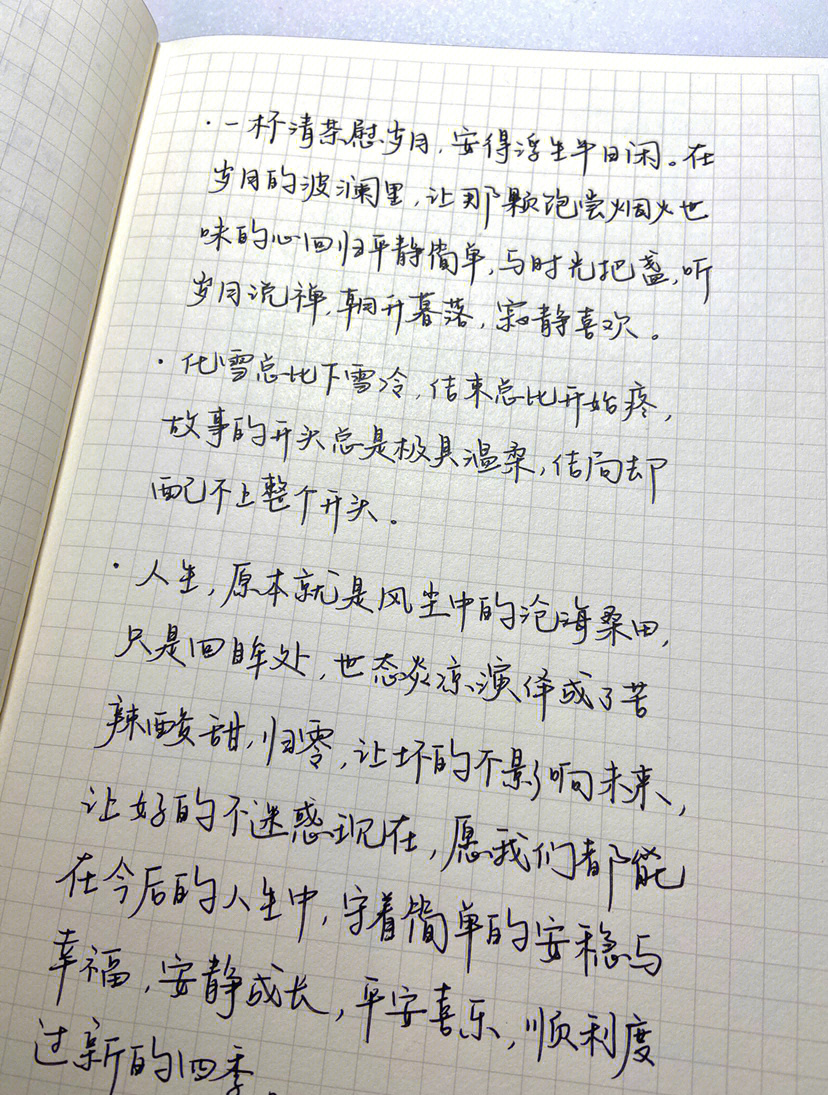 ·一杯清茶慰岁月，安得浮生半日闲。在
岁月的波澜里，让那颗饱尝烟火世
味的心回归平静简单，与时光把盏，听
岁月说禅，朝开暮落，寂静喜欢。
·化雪总比下雪冷，结束总比开始疼，
故事的开头总是极具温柔，结局却
配不上整个开头。
·人生，原本就是风尘中的沧海桑田，
只是回眸处，世态炎凉演绎成了苦
辣酸甜，归零，让坏的不影响未来，
让好的不迷惑现在，愿我们都能
在今后的人生中，守着简单的安稳与
幸福，安静成长，平安喜乐，顺利度
过新的四季。